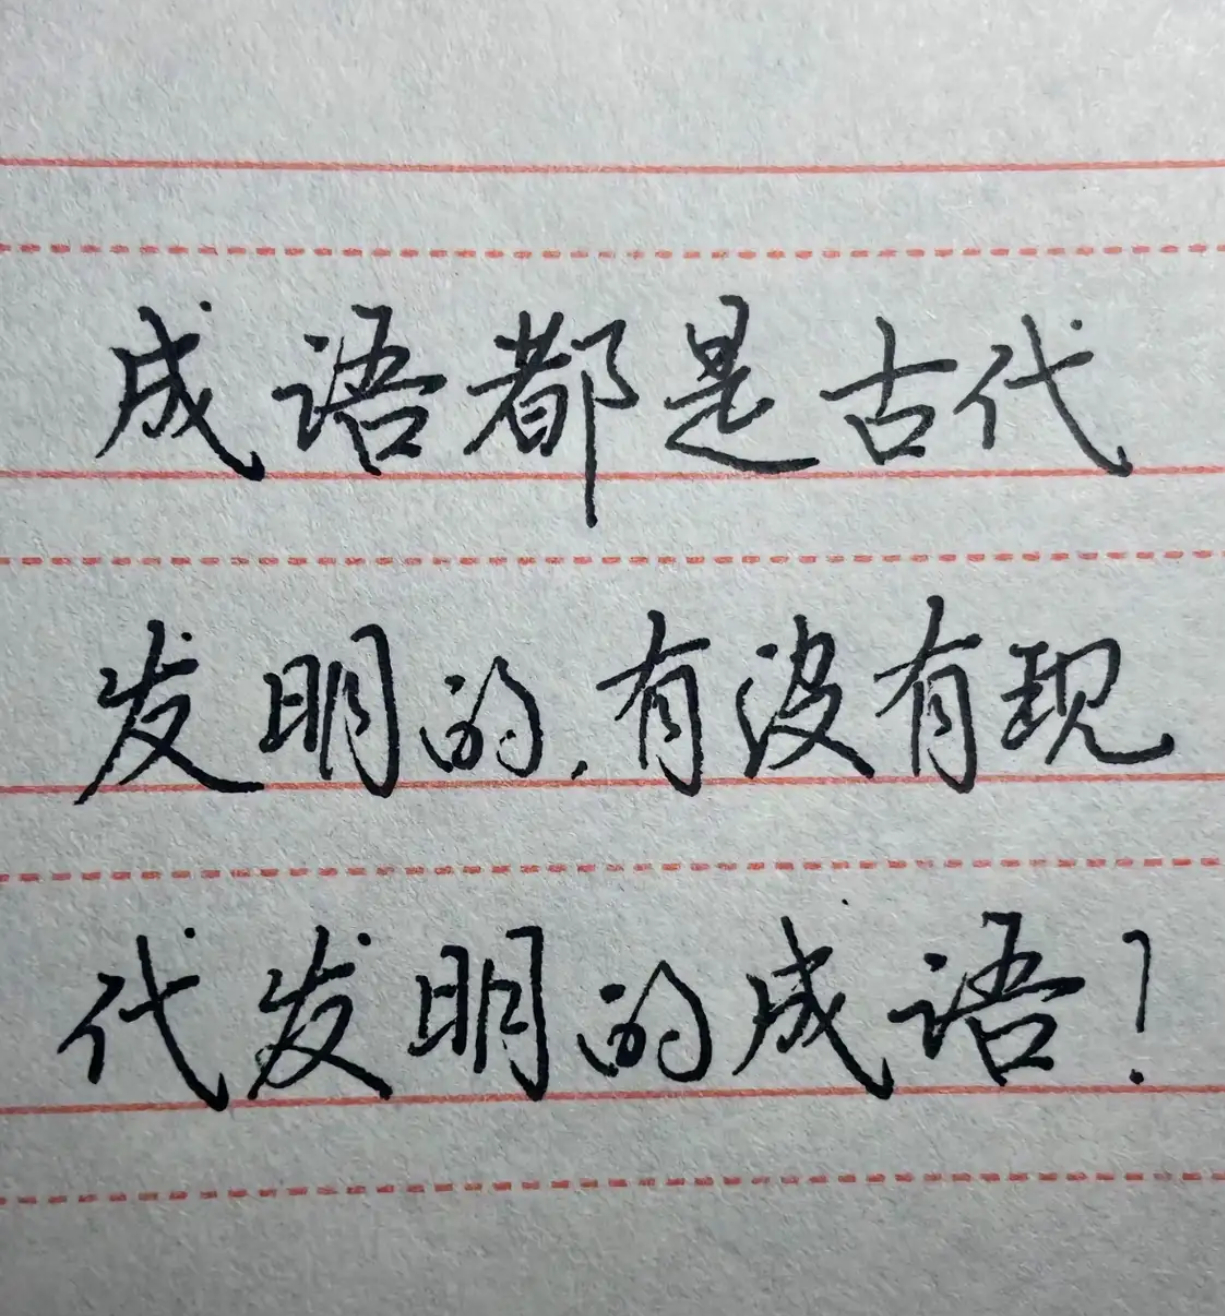 成语都是古代
发明的,有没有现
代发明的成语?